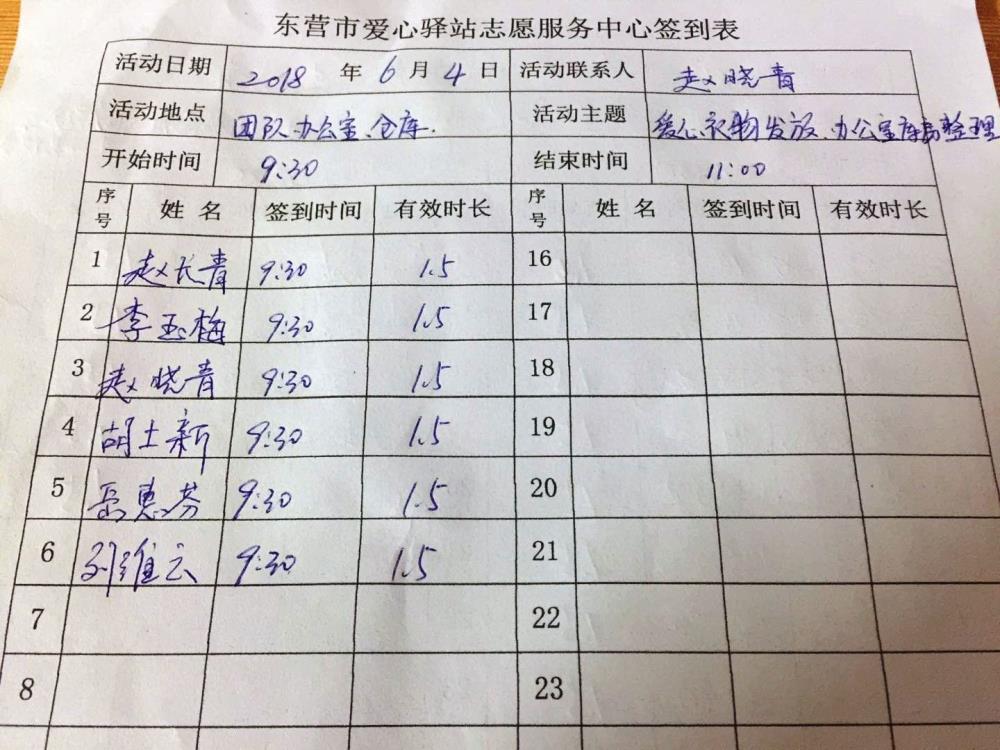 东营市爱心驿站志愿服务中心签到表
活动日期 2018 年 6 月 4 日 活动联系人 赵晓青
活动地点 团队办公室、仓库. 活动主题 爱心衣物发放、办公室库房整理
开始时间 9:30 结束时间 11:00
序号 姓名 签到时间 有效时长 序号 姓名 签到时间 有效时长
1 赵长青 9:30 1.5 16
2 李玉梅 9:30 1.5 17
3 赵晓青 9:30 1.5 18
4 胡士新 9:30 1.5 19
5 岳惠芬 9:30 1.5 20
6 刘维云 9:30 1.5 21
7 22
8 23